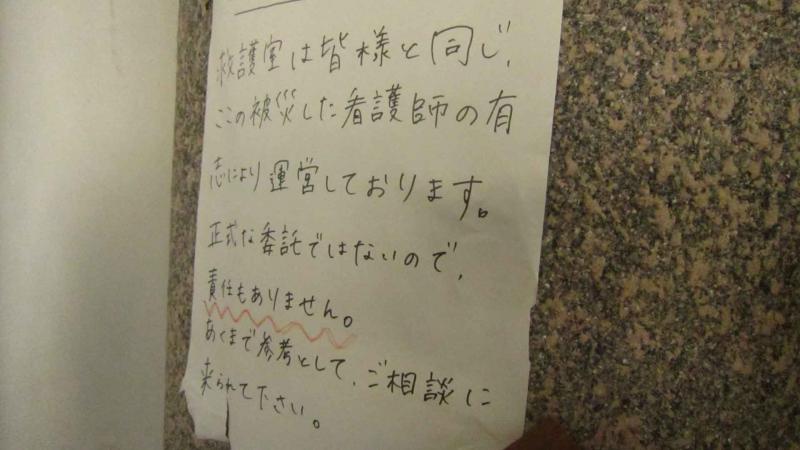 救護室は皆様と同じ、
ここの被災した看護師の有
志により運営しております。
正式な委託ではないので、
責任もありません。
あくまで参考として、ご相談に
来られて下さい。